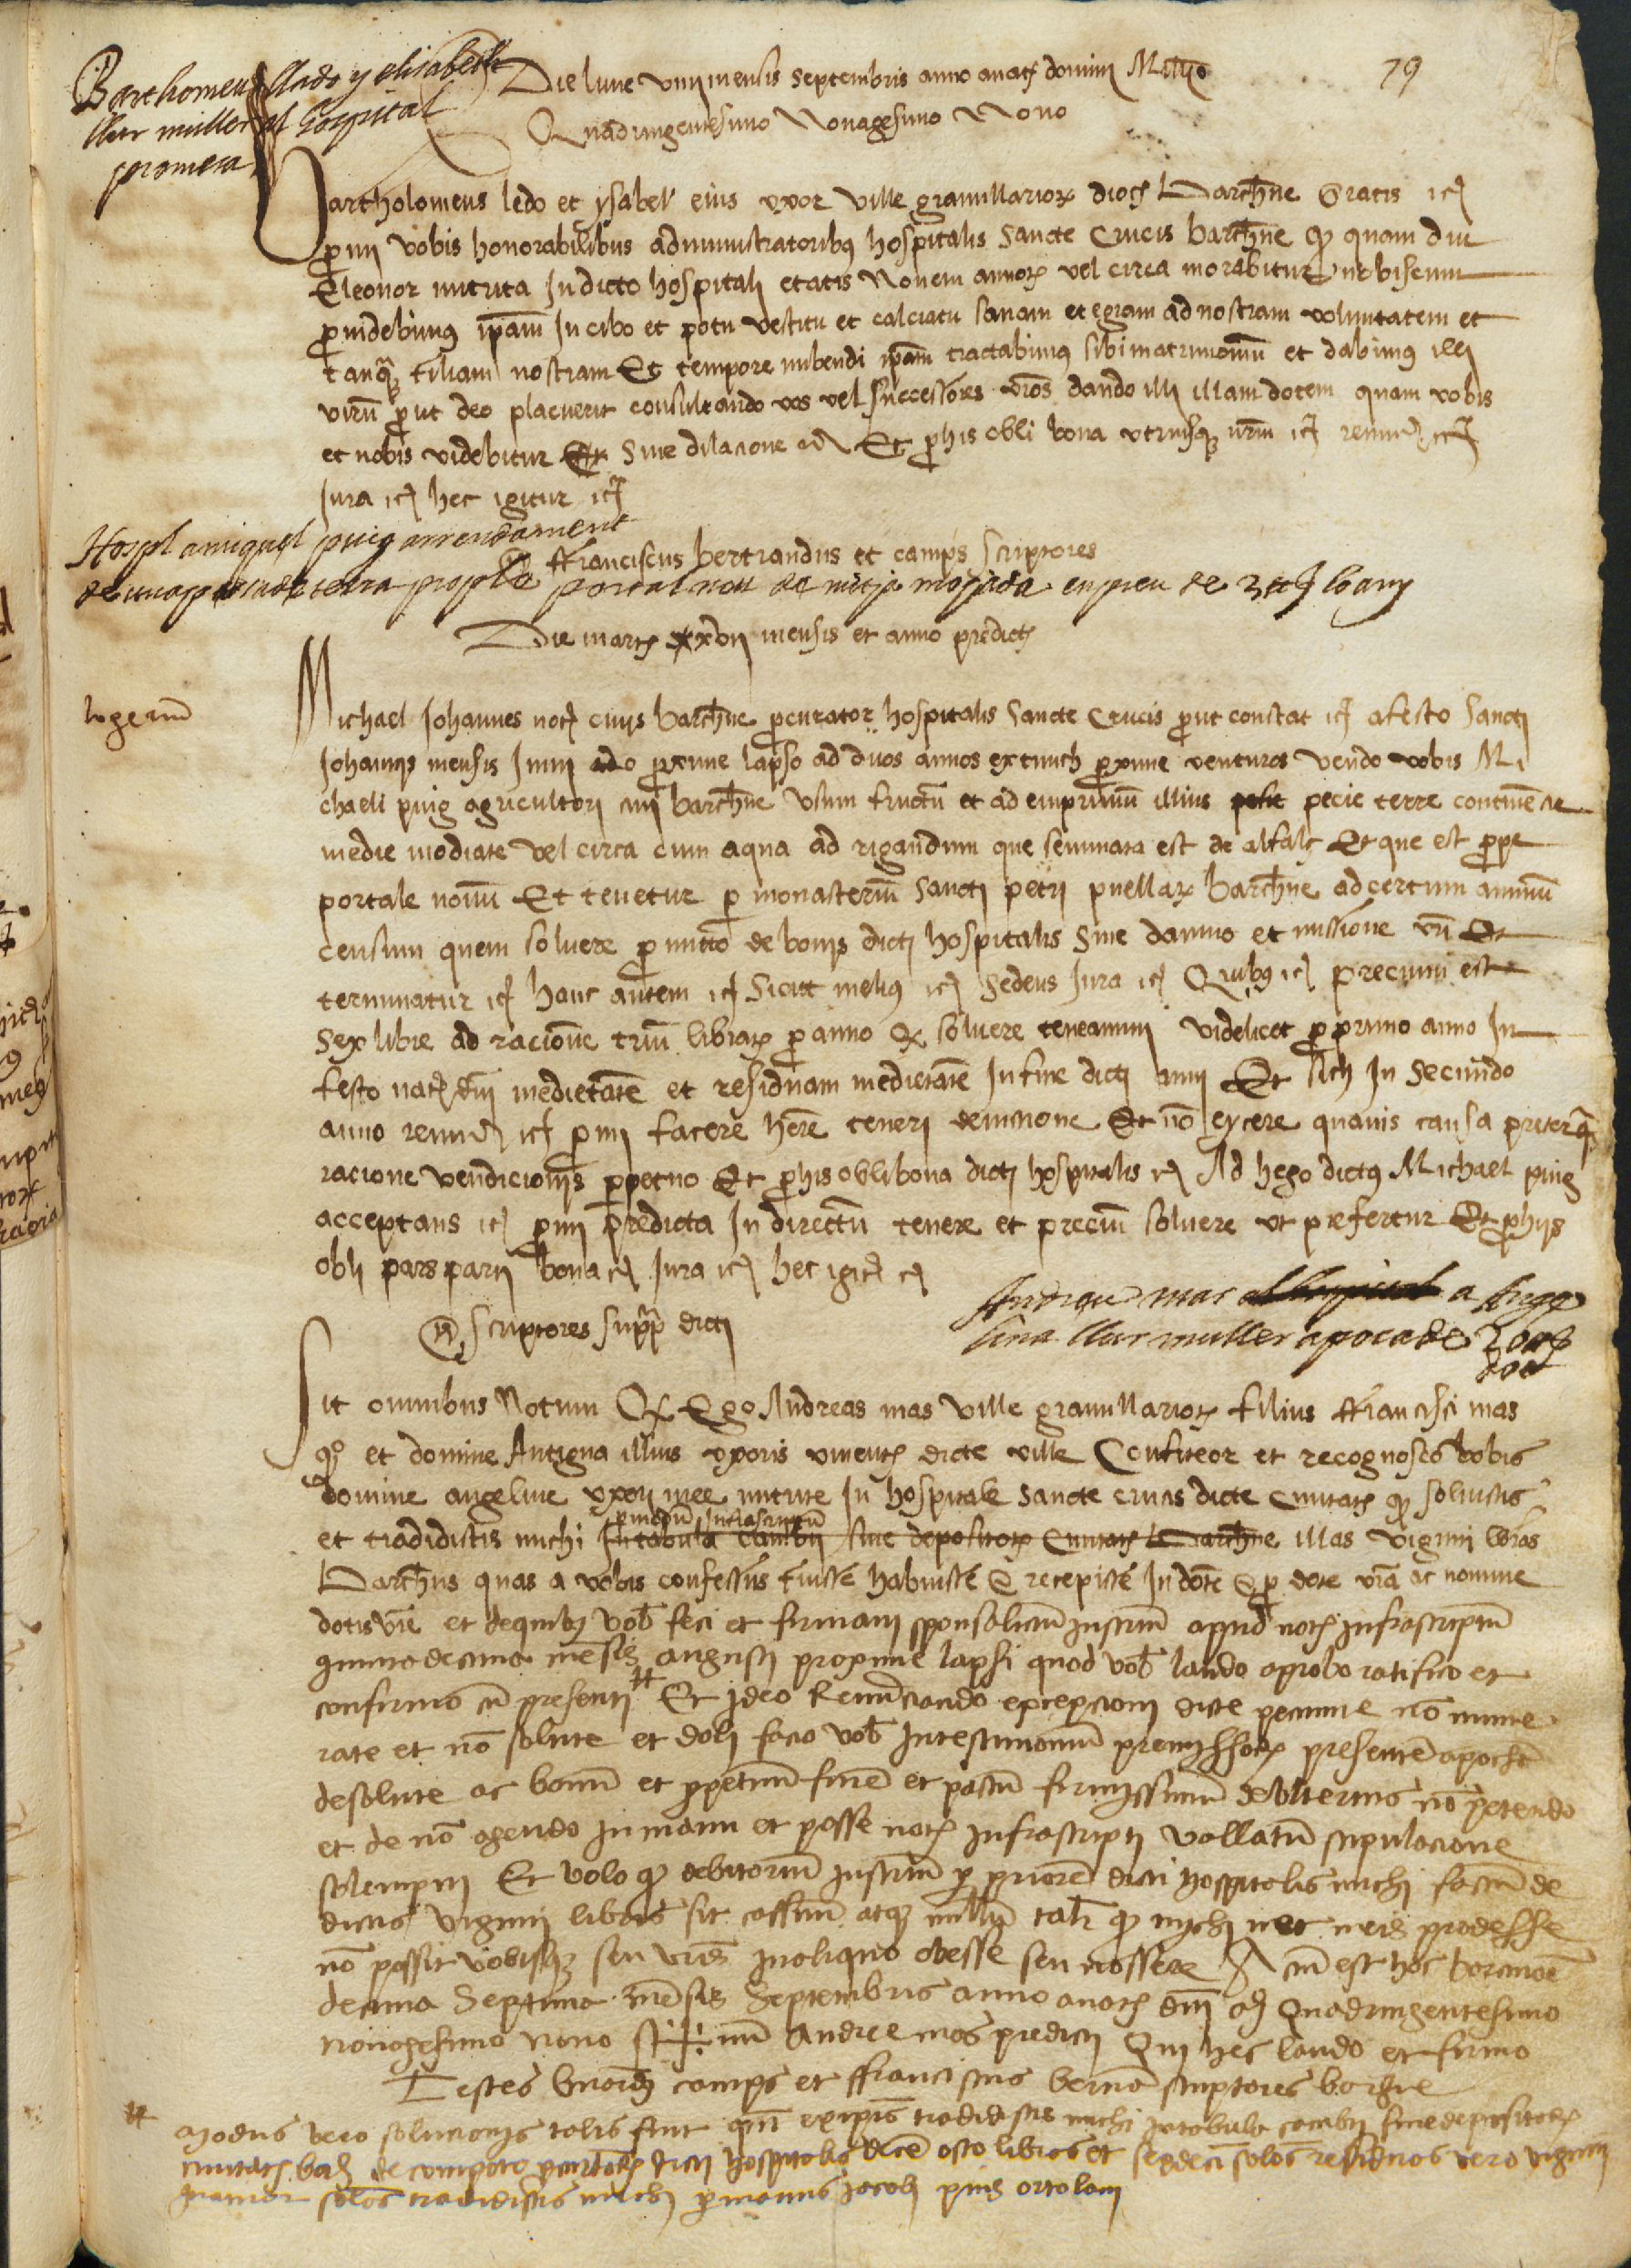 79
Barthomeu llado y elisabeth
llur muller al hospital
promesa
Die lune viiii mensis Septembris anno a natz domini Millo
Quadringentesimo Nonagesimo Nono
Bartholomeus ledo et ysabel eius uxor ville granullarioz dioc Barchne Gratis etc
pmi vobis honorabilibus administratoribus hospitalis Sancte Crucis barchne q quam diu
Eleonor nutrita In dicto hospitali etatis Novem annoz vel circa morabitur nobiscum
providebimus ipam In cibo et potu vestitu et calciatu sanam et egram ad nostram voluntatem et
tanq filiam nostram Et tempore nubendi ipam tractabimus sibi matrimonium et dabimus illi
virum prout deo placuerit consultando vos vel Successores vros dando illi illam dotem quam vobis
et nobis videbitur Et Sine dilacione etc Et p his obli bona utriusq nrm etc renun etc
Jura etc hec igitur etc
Hospl a miquel puig arrendament
Ts ffranciscus bertrandus et camps scriptores
de una pessa de terra prop lo portal nou de mitja mojada en preu de 3 ll lo any
Die martz xvii mensis et anno predictz
logerium
Michael Johannes notz civis barchne pcurator hospitalis Sancte Crucis put constat etc a festo Sancti
Johannis mensis Junii proxime lapso ad duos annos extunch pxime venturos vendo vobis Mi
chaeli puig agricultori civi barchne Usum fructum et ad emprivium illius pecie terre continencie
medie modiate vel circa cum aqua ad rigandum que seminata est de alfals Et que est prope
portale novum Et tenetur p monasterium Sancti petri puellaz barchne ad certum annuum
censum quem solvere pmitto de bonis dicti hospitalis Sine damno et missione vri Et
terminatur etc hanc autem etc Sicut melius etc Sedens Jura etc Quibus etc precium est
Sex libre ad racionem trium libraz p anno Q solvere teneamini videlicet p primo anno In
festo natz dni medietatem et residuam medietatem In fine dicti anni Et sich In Secundo
anno renun etc pmi facere here teneri de eviccione Et no eycere quavis causa preterq
racione vendicionis ppetuo Et p his obli bona dicti hospitalis etc Ad hec ego dictus Michael puig
acceptans etc pmi predicta In directum tenere et precium solvere ut prefertur Et p hiis
obli pars parti bona etc Jura etc hec igitur etc
Ts Scriptores supra dicti
Andreu mas al hospital a Ange
lina llur muller apoca de 20 ll
Sit omnibus Notum Q Ego Andreas mas ville granullarioz filius ffrancisci mas
q et domine Antigua illius uxoris viventz dicte ville Confiteor et recognosco vobis
domine angeline uxori mee nutrite In hospitale Sancte crucis dicte Civitatz q solvistis
p modum Infrascriptum
et tradidistis michi In tabula Cambii sive depositoz Civitatz Barchne illas viginti libras
Barchns quas a vobis confessus fuisse habuisse & recepisse In dotem & p dote vra ac nomine
dotis vre et de quibus vob feci et firmavi sponsalicium instrum apud notz infrascriptum
quinta decima mensis augusti proxime lapsi quod vob laudo aprobo ratifico et
confirmo cu presenti # Et ideo Renunciando excepcioni dicte pecunie no nume
rate et no solute et doli facio vob In testimonium premissoz presentem apocham
de solute ac bonum et ppetuum finem et pactum firmissimum de ulterius no petendo
et de no agendo in manu et posse notz infrascripti vallatum stipulacione
solempni Et volo q debitorium instrum p priorem dicti hospitalis michi factum de
dictis viginti libris sit cassum atq nullum tali q michi nec meis prodesse
no possit vobisq seu vris in aliquo obesse seu nossere Actum est hoc barcinone
decima Septima mensis Septembris anno a natz dni M Quadringentesimo
nonagesimo nono Sig+num Andree mas predicti Qui hec laudo et firmo
Testes camps et ffranciscus bertran scriptores barchne
# Modus vero solucionis talis fuit qm ex ipis tradidistis michi in tabula cambii sive depositoz
civitatz barch de comptoz dicti hospitalis decem octo libras et sexdecim solos residuos vero viginti
quatuor solos tradidistis michi p manus Jacobi puig ortolani